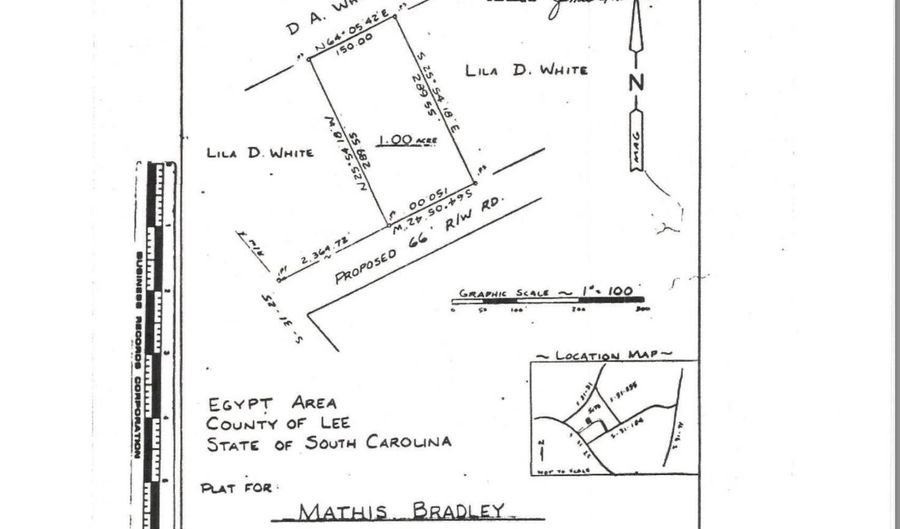 D A.
N64°05'42"E
150.00
S 25°54'18"E
289.55'
LILA D. WHITE
N
MAG
LILA D. WHITE
N25°54'18"W
289.55
1.00 ACRE
150.00
S64°05'42"W
2,364.72'
R/W
PROPOSED 66' R/W RD.
S-31-25
GRAPHIC SCALE ~ 1"= 100'
0 50 100 200 300
~ LOCATION MAP ~
S-31-154
NOT TO SCALE
EGYPT AREA
COUNTY OF LEE
STATE OF SOUTH CAROLINA
PLAT FOR
MATHIS BRADLEY
BUSINESS RECORDS CORPORATION
1
2
3
4